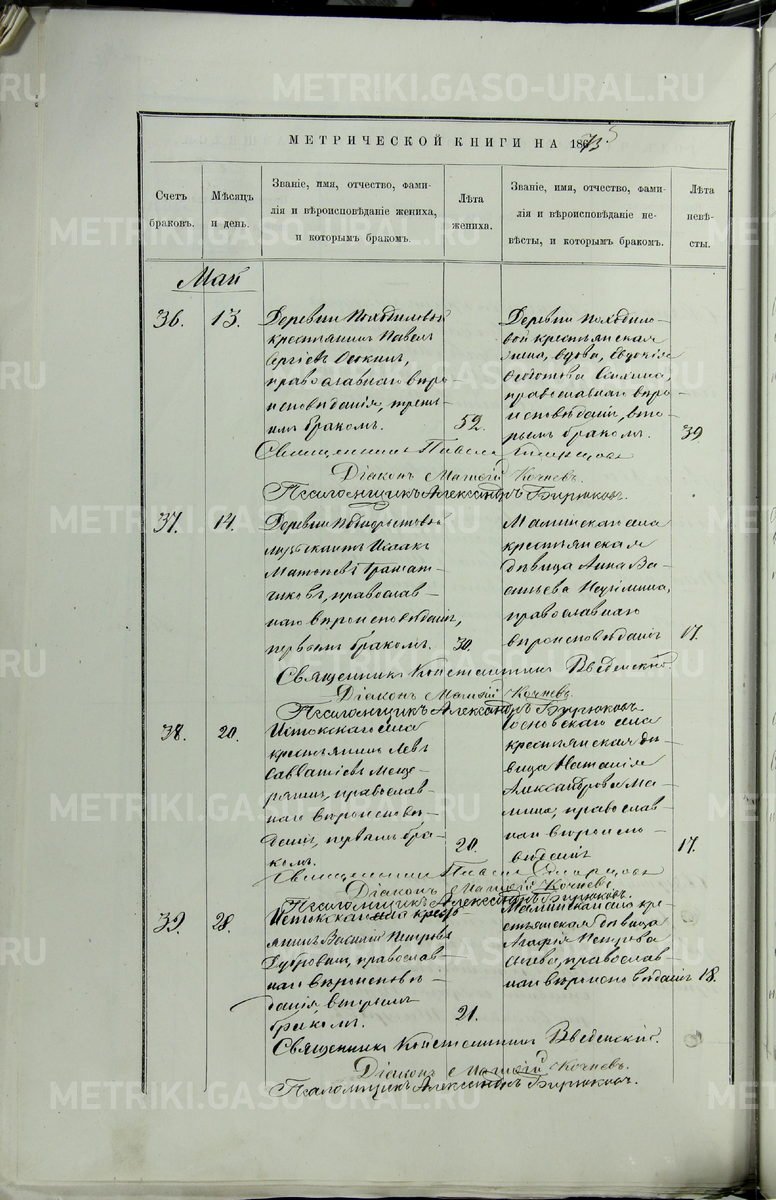 METRIKI.GASO-URAL.RU
МЕТРИЧЕСКОЙ КНИГИ НА 1873
5
Счетъ браковъ.
Мѣсяцъ и день.
Званіе, имя, отчество, фами-
лія и вѣроисповѣданіе жениха,
и которымъ бракомъ.
Лѣта жениха.
Званіе, имя, отчество, фами-
лія и вѣроисповѣданіе не-
вѣсты, и которымъ бракомъ.
Лѣта невѣ-
сты.
Май
36.
13.
Деревни
крестьянинъ Павелъ
Сергіевъ
православнаго вѣро-
исповѣданія, треть-
имъ бракомъ.
52.
Деревни
вой крестьянская
жена, вдова, Евдокія
православнаго вѣро-
исповѣданія, вто-
рымъ бракомъ.
39
Священникъ Павелъ
Діаконъ Матѳій Кочневъ.
Псаломщикъ Александръ Бирюковъ.
37.
14.
Деревни
Исаакъ
православ-
наго вѣроисповѣданія,
первымъ бракомъ.
30.
Маминскаго села
крестьянская
дѣвица Анна Ва-
сильева
православнаго
вѣроисповѣданія
17.
Священникъ Константинъ Введенскій.
Діаконъ Матѳій Кочневъ.
Псаломщикъ Александръ Бирюковъ.
38.
20.
Истокскаго села
крестьянинъ Левъ
Савватіевъ Меще-
рягинъ, православ-
наго вѣроисповѣ-
данія, первымъ бра-
комъ.
20.
Сосновскаго села
крестьянская дѣ-
вица Наталія
Александрова Ма-
мина, православ-
наго вѣроиспо-
вѣданія
17.
Священникъ Павелъ
Діаконъ Матѳій Кочневъ.
Псаломщикъ Александръ Бирюковъ.
39.
28.
Истокскаго села кресть-
янинъ Василій Петровъ
Дубровинъ, православ-
наго вѣроисповѣ-
данія, вторымъ
бракомъ.
21.
Маминскаго села кре-
стьянская дѣвица
Марія Петрова
православ-
наго вѣроисповѣданія
18.
Священникъ Константинъ Введенскій.
Діаконъ Матѳій Кочневъ.
Псаломщикъ Александръ Бирюковъ.